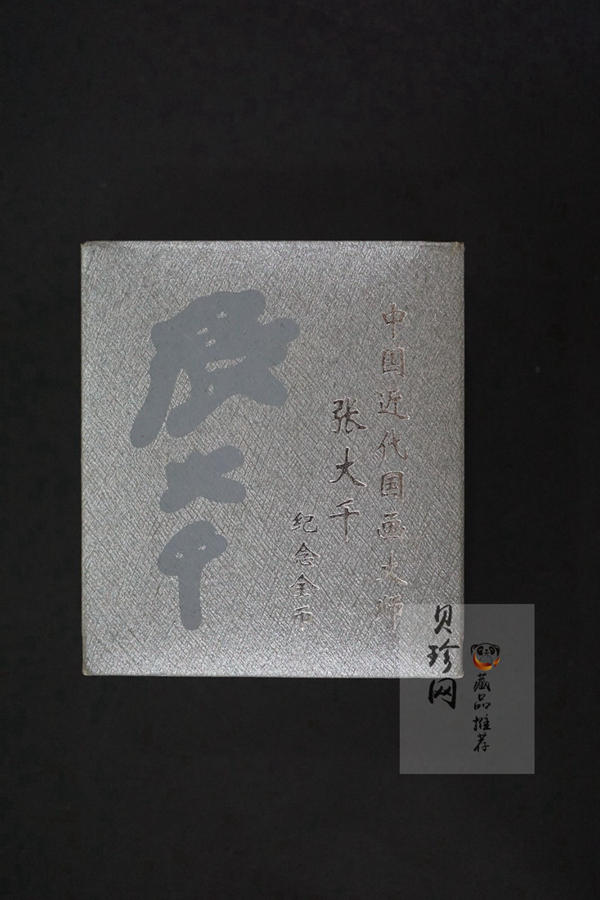 中国近代国画大师
张大千
纪念金币
大千
贝珍网
藏品推荐